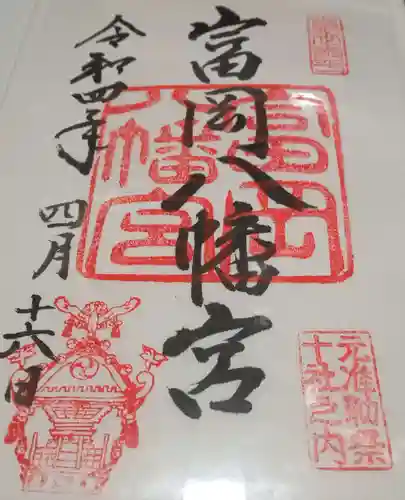 富岡八幡宮
元准勅祭
十社之内
富岡
八幡宮
令和四年
四月
十六日